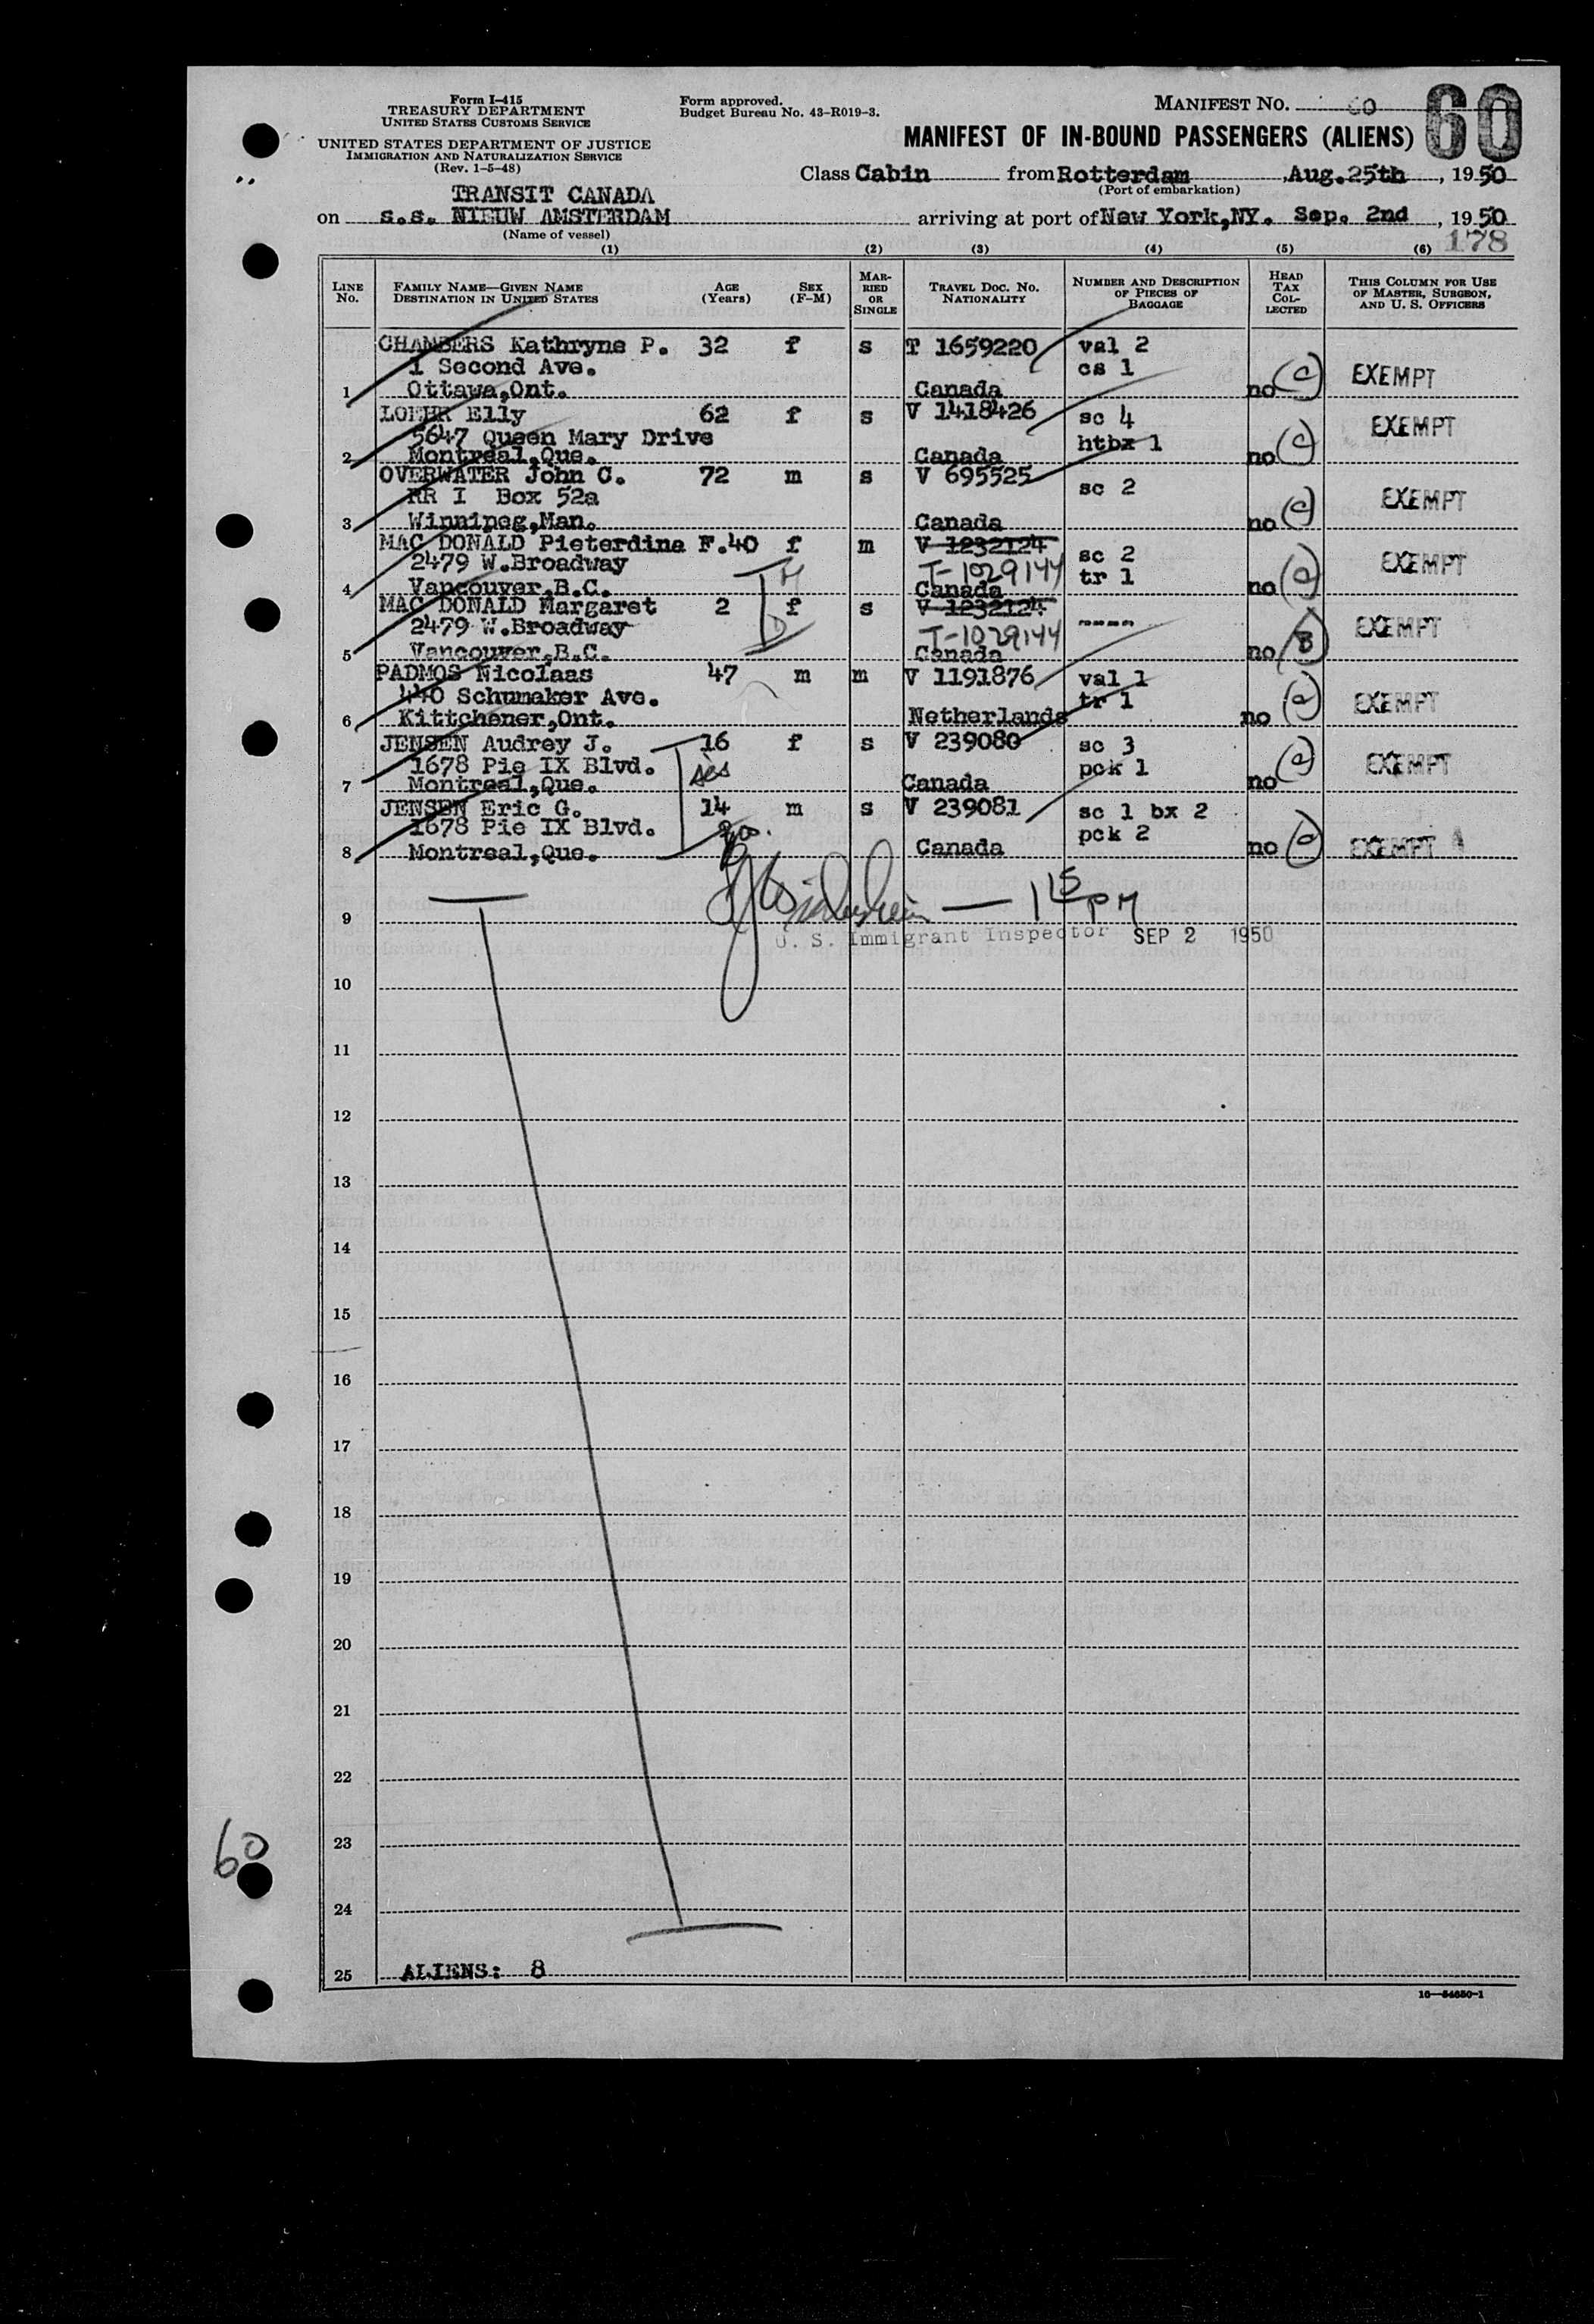 Form I-415
TREASURY DEPARTMENT
UNITED STATES CUSTOMS SERVICE
UNITED STATES DEPARTMENT OF JUSTICE
IMMIGRATION AND NATURALIZATION SERVICE
(Rev. 1-5-48)
Form approved.
Budget Bureau No. 43-R019-3.
MANIFEST NO. 60
60
MANIFEST OF IN-BOUND PASSENGERS (ALIENS)
Class Cabin from Rotterdam, Aug. 25th, 1950
(Port of embarkation)
TRANSIT CANADA
on s.s. NIEUW AMSTERDAM arriving at port of New York,NY. Sep. 2nd, 1950
(Name of vessel)
178
(1) (2) (3) (4) (5) (6)
LINE No.
FAMILY NAME—GIVEN NAME
DESTINATION IN UNITED STATES
AGE (Years)
SEX (F-M)
MARRIED OR SINGLE
TRAVEL DOC. NO.
NATIONALITY
NUMBER AND DESCRIPTION OF PIECES OF BAGGAGE
HEAD TAX COLLECTED
THIS COLUMN FOR USE OF MASTER, SURGEON, AND U. S. OFFICERS
CHAMBERS Kathryne P. 32 f s T 1659220 val 2
1 Second Ave. cs 1
1 Ottawa,Ont. Canada no (c) EXEMPT
LOEHR Elly 62 f s V 1418426 sc 4
5647 Queen Mary Drive htbx 1
2 Montreal,Que. Canada no (c) EXEMPT
OVERWATER John C. 72 m s V 695525 sc 2
RR I Box 52a
3 Winnipeg,Man. Canada no (c) EXEMPT
MAC DONALD Pieterdina F. 40 f m V 1232124 sc 2
2479 W.Broadway M T-1029144 tr 1
4 Vancouver,B.C. Canada no (c) EXEMPT
MAC DONALD Margaret 2 f s V 1232124 -----
2479 W.Broadway D T-1029144
5 Vancouver,B.C. Canada no (B) EXEMPT
PADMOS Nicolaas 47 m m V 1191876 val 1
440 Schumaker Ave. tr 1
6 Kittchener,Ont. Netherlands no (c) EXEMPT
JENSEN Audrey J. 16 f s V 239080 sc 3
1678 Pie IX Blvd. sis pck 1
7 Montreal,Que. Canada no (c) EXEMPT
JENSEN Eric G. 14 m s V 239081 sc 1 bx 2
1678 Pie IX Blvd. bro. pck 2
8 Montreal,Que. Canada no (c) EXEMPT
— 1 15 PM
9
U. S. Immigrant Inspector SEP 2 1950
10
11
12
13
14
15
16
17
18
19
20
21
22
23
60
24
25 ALIENS: 8